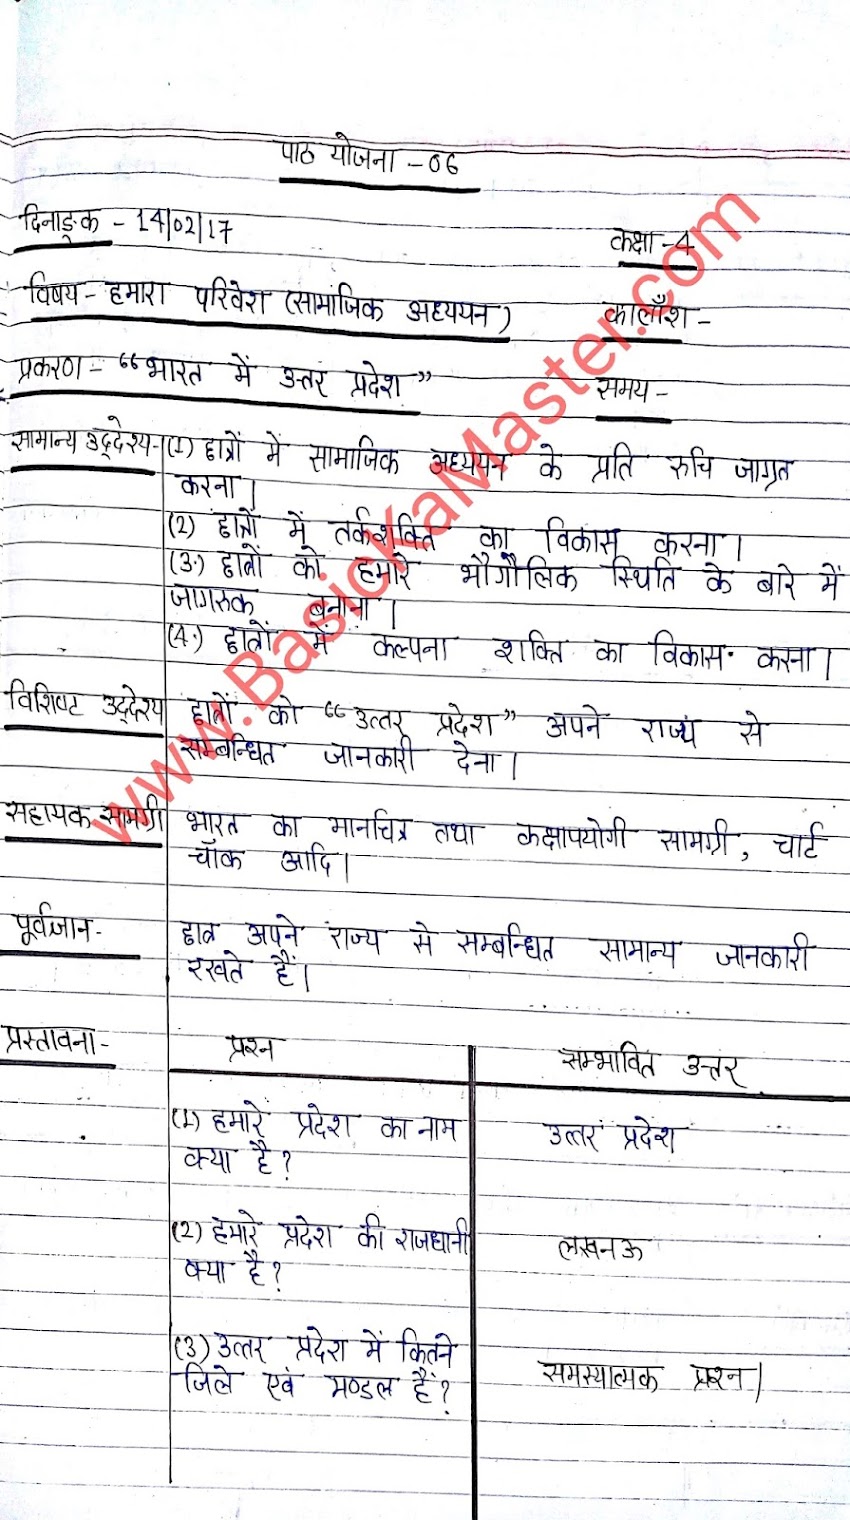 पाठ योजना - 06
दिनाङ्क - 14/02/17
कक्षा - 4
विषय - हमारा परिवेश (सामाजिक अध्ययन)
कालाँश -
प्रकरण - “भारत में उत्तर प्रदेश”
समय -
सामान्य उद्देश्य - (1) छात्रों में सामाजिक अध्ययन के प्रति रुचि जाग्रत
करना।
(2) छात्रों में तर्कशक्ति का विकास करना।
(3.) छात्रों को हमारे भौगौलिक स्थिति के बारे में
जागरुक बनाना।
(4.) छात्रों में कल्पना शक्ति का विकास करना।
विशिष्ट उद्देश्य छात्रों को “उत्तर प्रदेश” अपने राज्य से
सम्बन्धित जानकारी देना।
सहायक सामग्री भारत का मानचित्र तथा कक्षापयोगी सामग्री, चार्ट
चॉक आदि।
पूर्वज्ञान - छात्र अपने राज्य से सम्बन्धित सामान्य जानकारी
रखते हैं।
प्रस्तावना - प्रश्न सम्भावित उत्तर
(1) हमारे प्रदेश का नाम उत्तर प्रदेश
क्या है?
(2) हमारे प्रदेश की राजधानी लखनऊ
क्या है?
(3) उत्तर प्रदेश में कितने समस्यात्मक प्रश्न।
जिले एवं मण्डल हैं?
www.BasicKaMaster.com